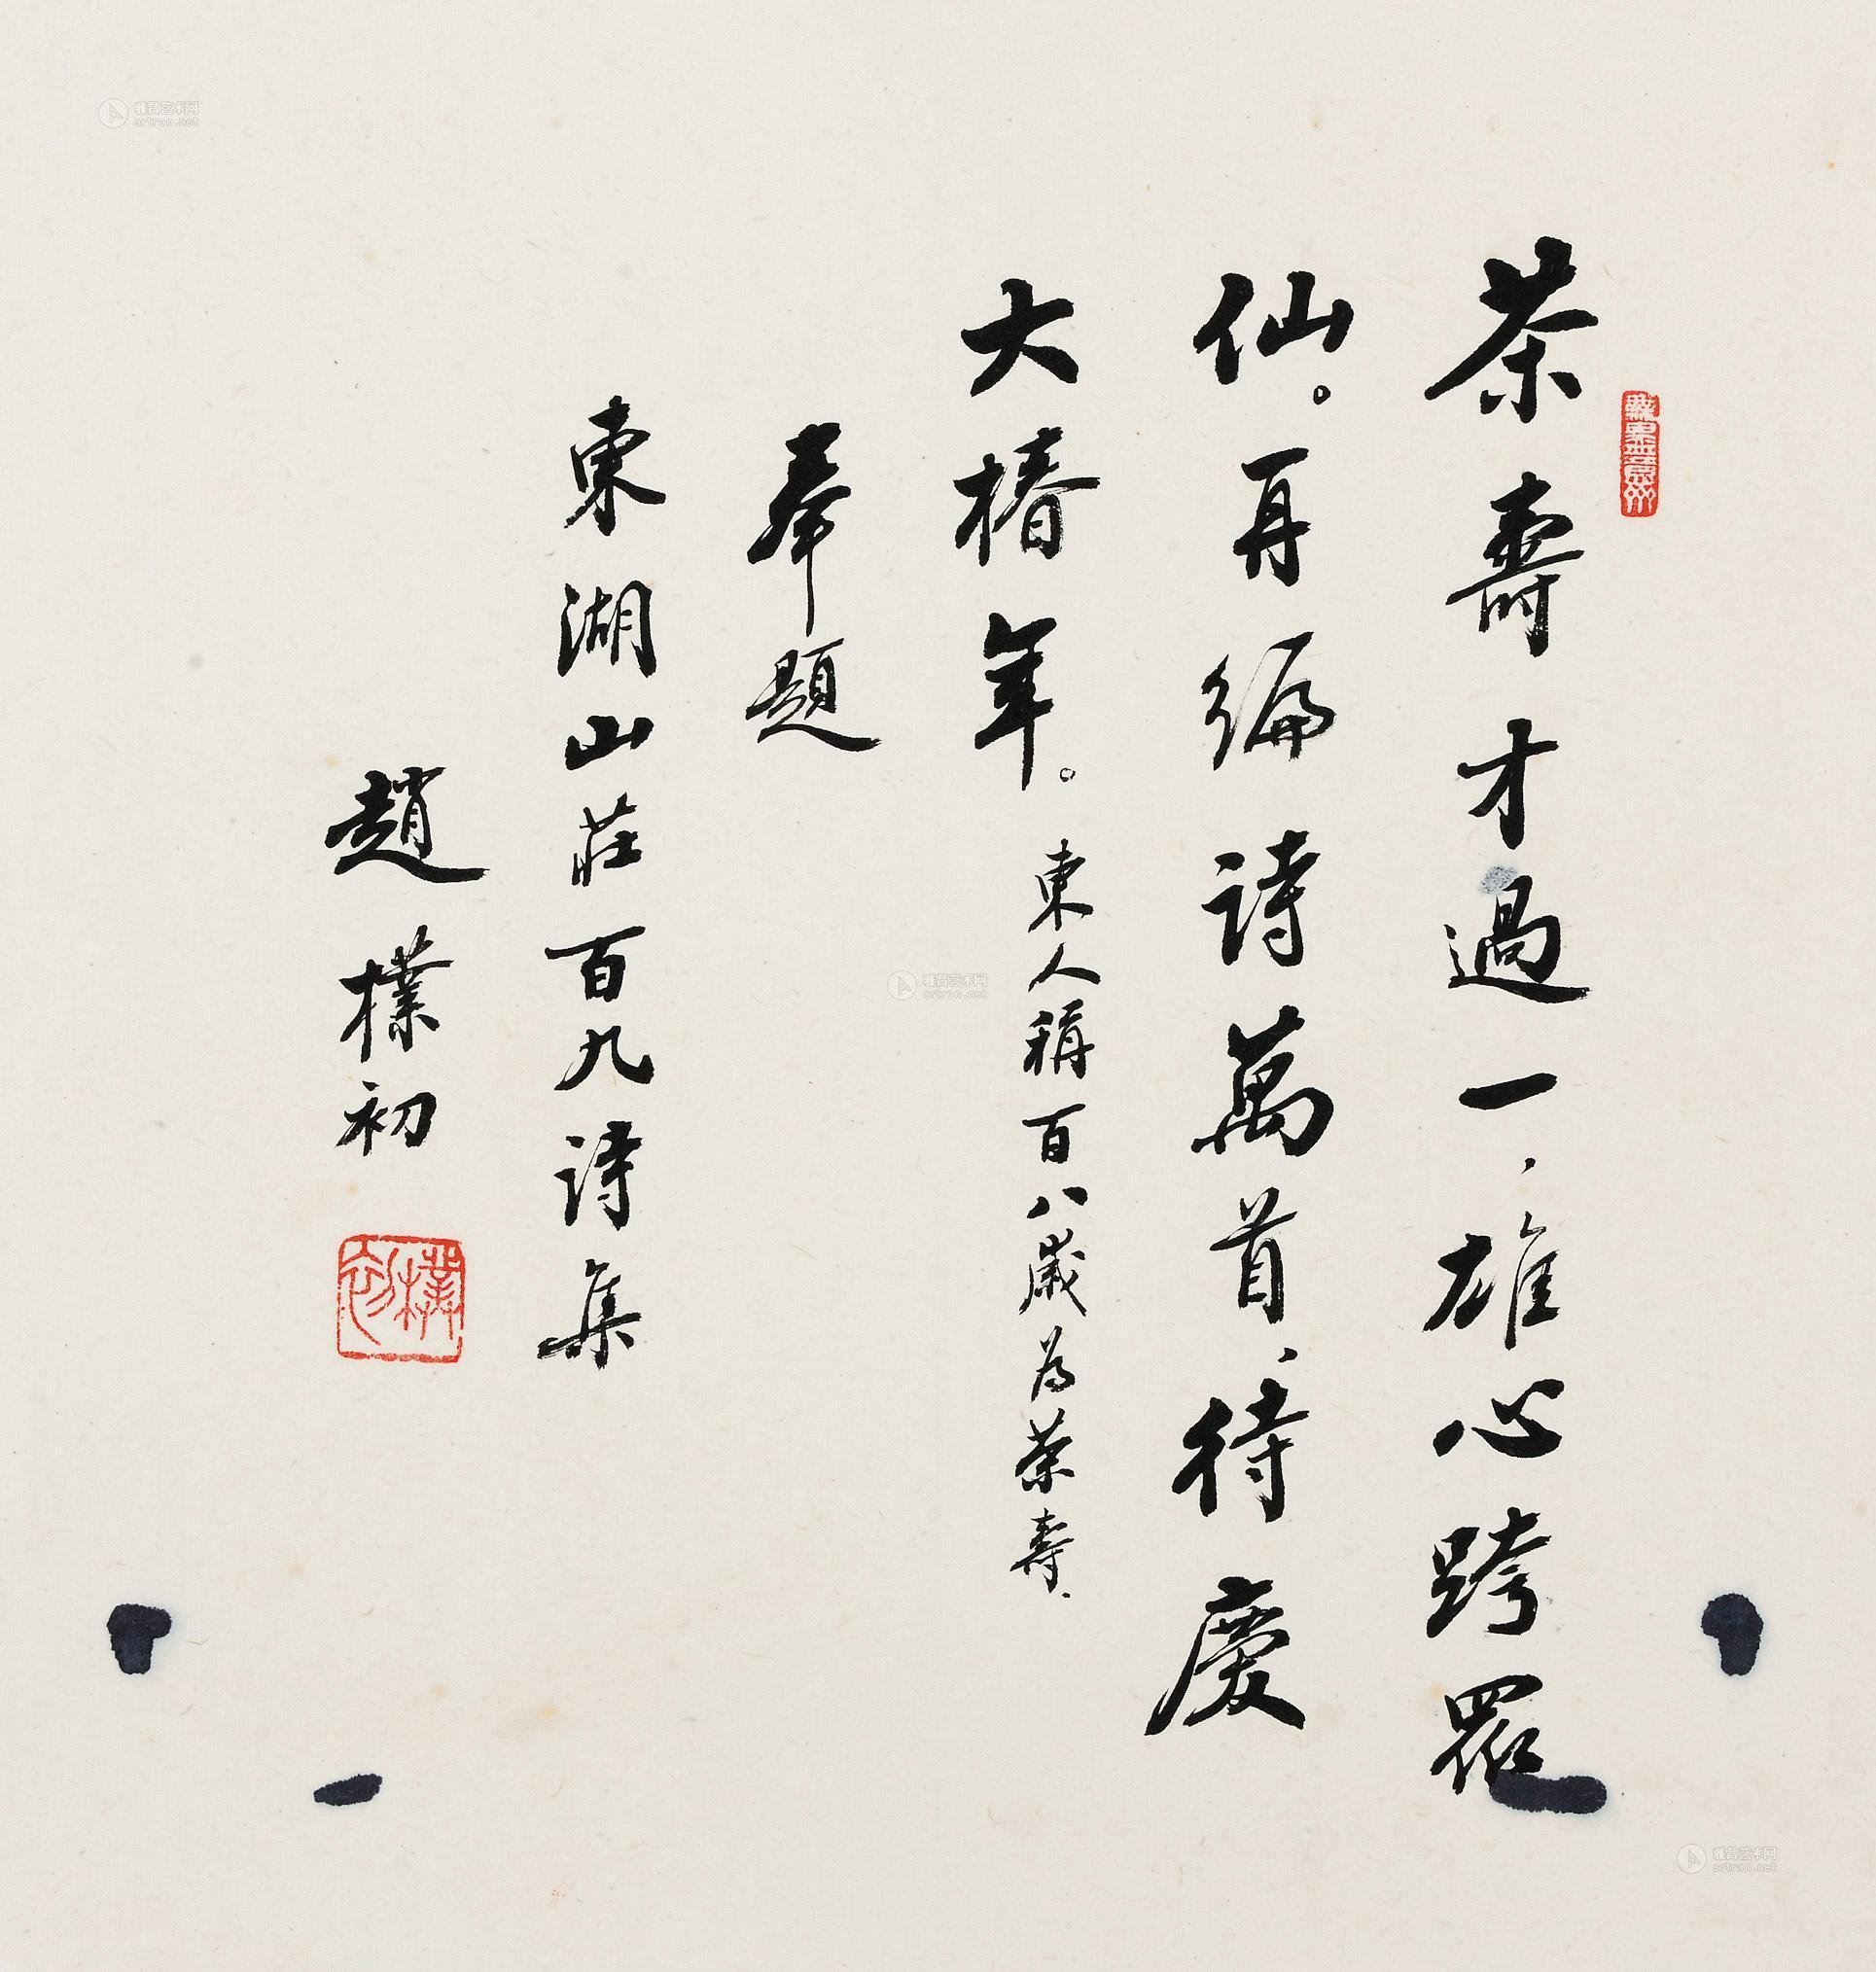 茶壽才過一、雄心跨羿
仙。再编詩萬首、待慶
大椿年。東人稱百八歲为茶壽、
奉題
東湖山莊百九詩集
趙樸初
樸初
雅昌艺术网
artron.net
雅昌艺术网
artron.net
雅昌艺术网
artron.net